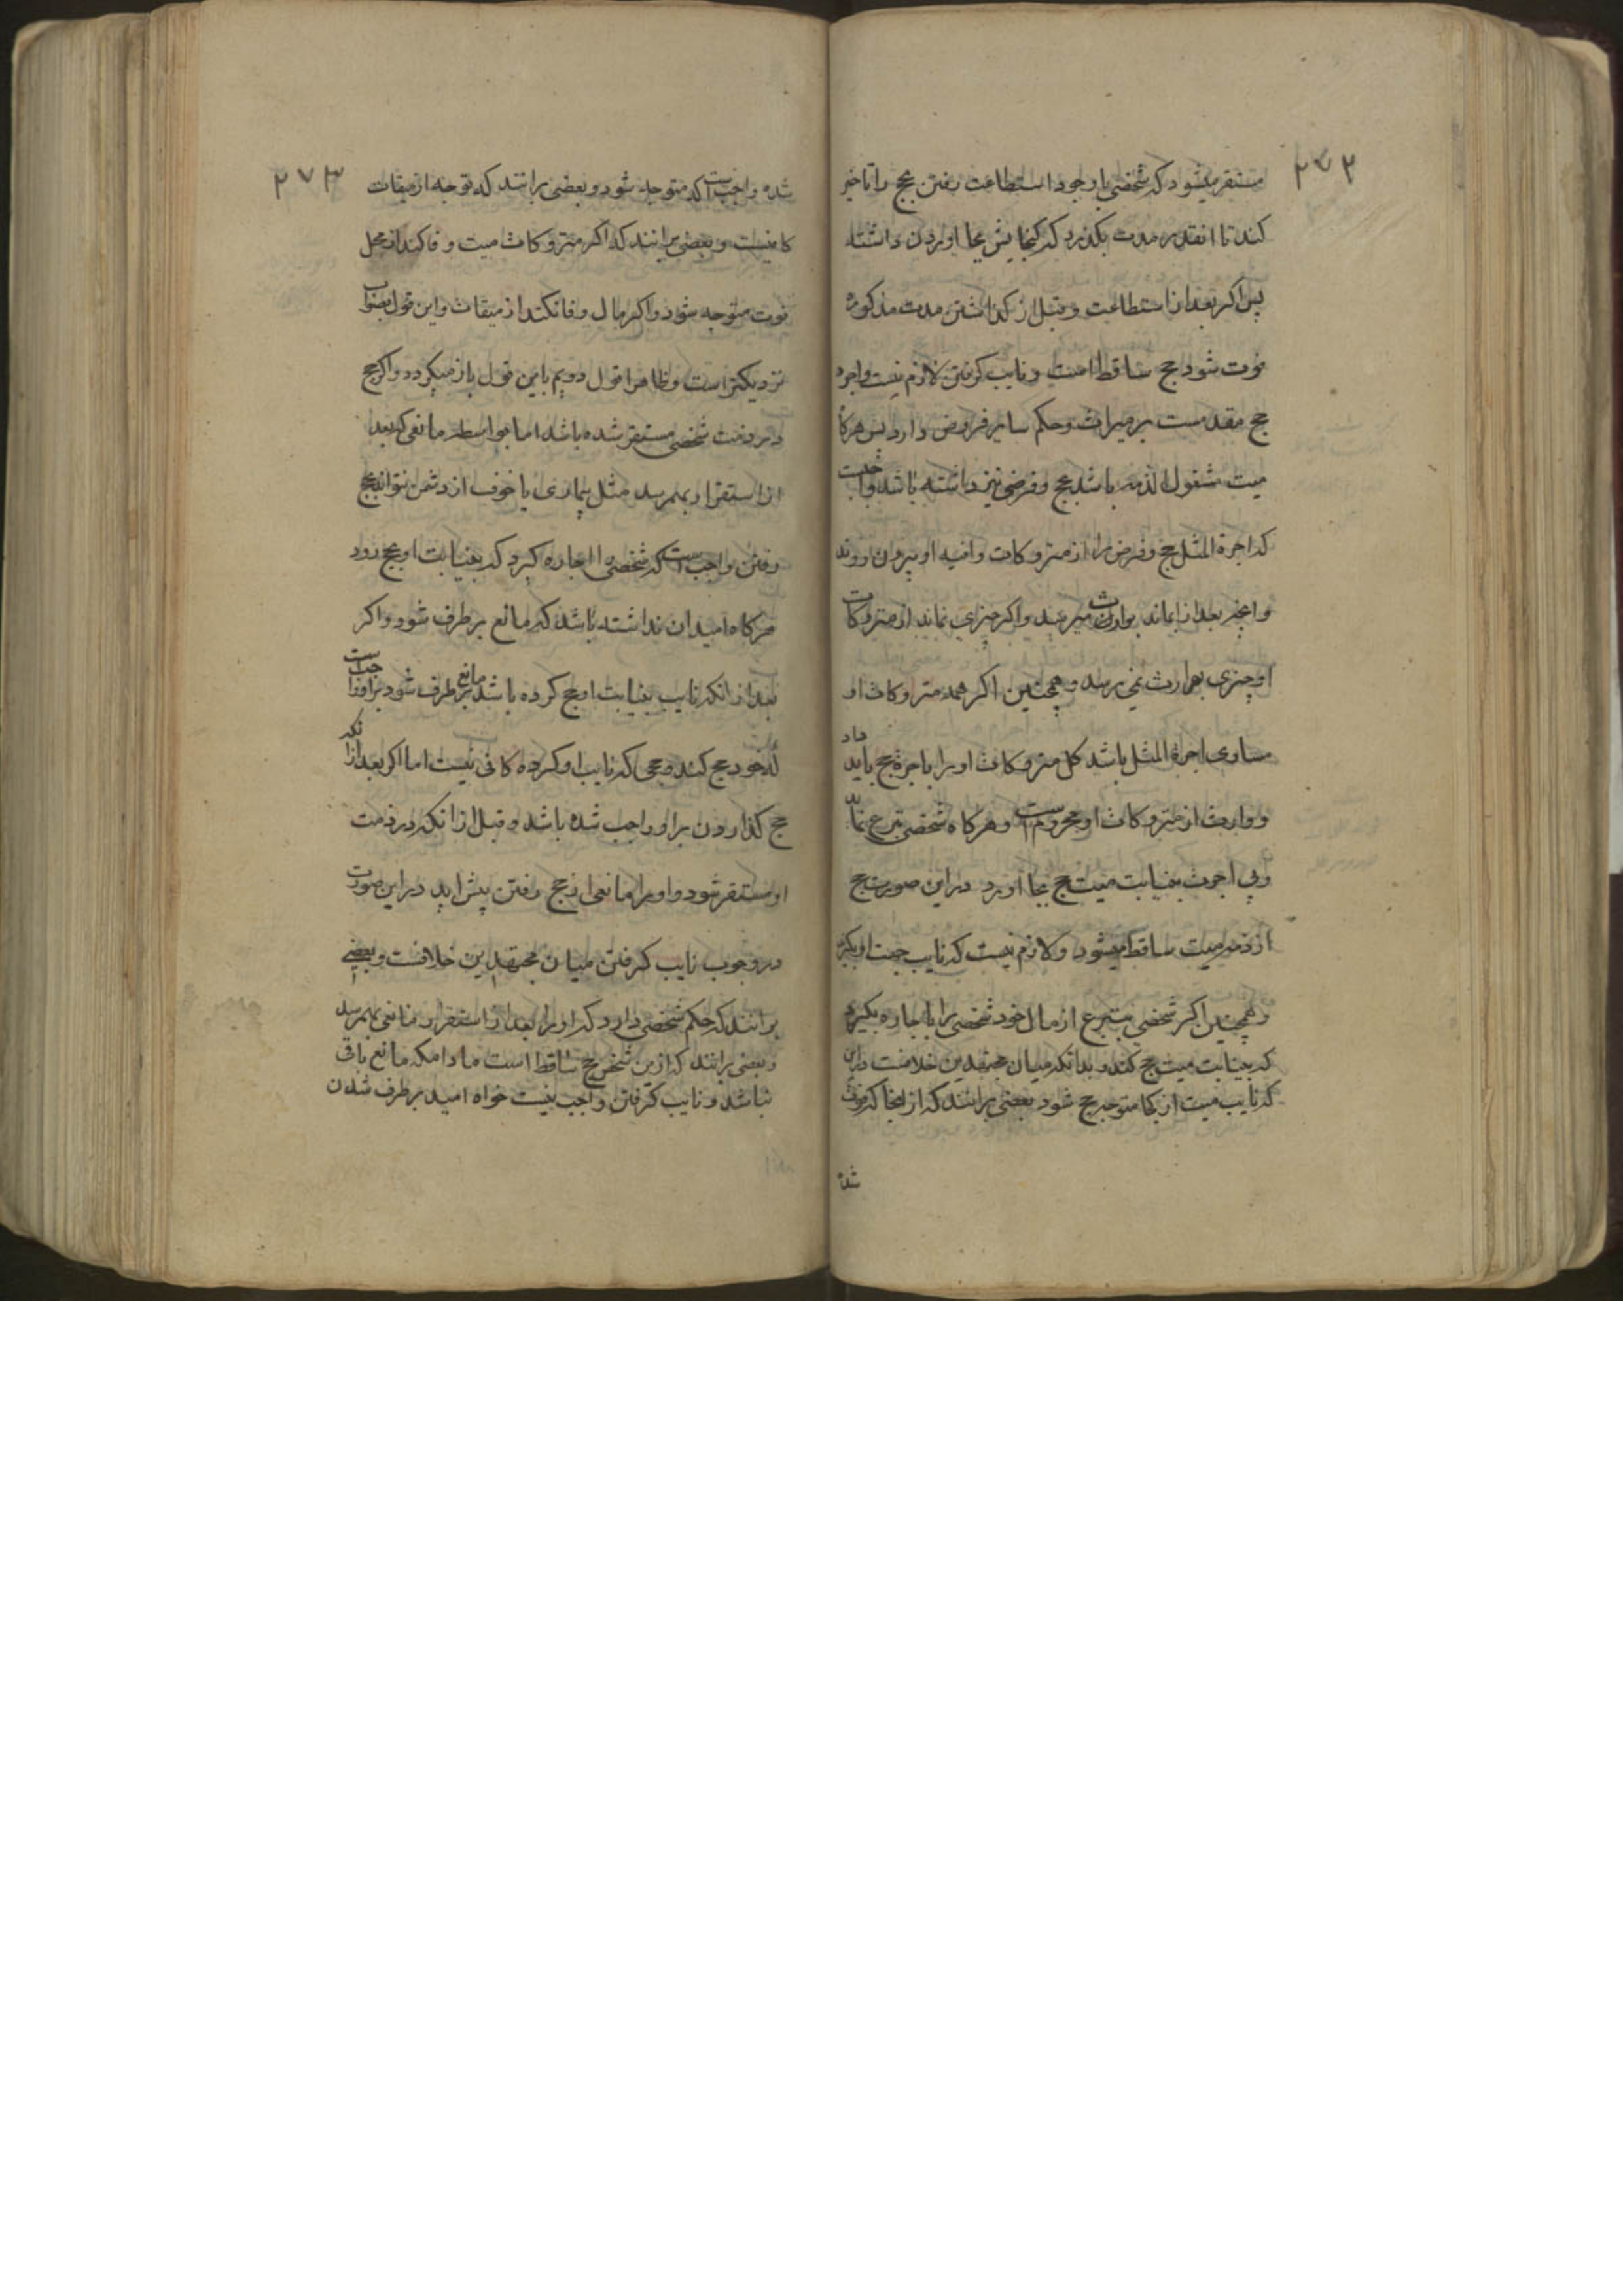 ۲۷۲
مستقر میشود که شخصی با وجود استطاعت رفتن حج را تاخیر
کند تا انقدر مدت بکذرد که کنجایش بجا اوردن داشته
پس اکر بعد از استطاعت و قبل از کذاشتن مدت مذکوره
فوت شود حج ساقط است و نایب کرفتن لازم نیست و اجرة
حج مقدمست بر میراث و حکم سایر قروض دارد پس هرکا
میت مشغول الذمه باشد بحج و قرضی نیز داشته باشد واجبست
که اجرة المثل حج و قرض را از متروکات وافیه او بیرون روند
و انچه بعد از ان بماند بوارث میرسد و اکر چیزی نماند از متروکات
او چیزی بوارث نمی رسد و همچنین اکر همه متروکات او
مساوی اجرة المثل باشد کل متروکات او را باجرة حج باید داد
و وارث از متروکات او محروم است و هرکاه شخصی تبرع نماید
و بی اجرت بنیابت میت حج بجا اورد در این صورت حج
از ذمه میت ساقط میشود و لازم نیست که نایب جهت او بکیرند
و همچنین اکر شخصی متبرع از مال خود شخصی را با جاره بکیرد
که بنیابت میت حج کند و بدانکه میان مجتهدین خلافست در این
که نایب میت از کجا متوجه حج شود بعضی برانند که از انجا که فوت
شده
۲۷۳
شده واجب است که متوجه شود و بعضی برانند که توجه از میقات
کافیست و بعضی برانند که اکر متروکات میت وفا کند از محل
فوت متوجه شود و اکر مال وفا نکند از میقات و این قول بصواب
نزدیکتر است و ظاهرا قول دویم باین قول باز میکردد و اکر حج
در ذمت شخصی مستقر شده باشد اما بواسطه مانعی که بعد
از استقرار بهمرسد مثل بیماری یا خوف از دشمن نتواند بحج
رفتن واجب است که شخصی را اجاره کیرد که بنیابت او بحج رود
هرکاه امید ان نداشته باشد که مانع بر طرف شود و اکر
بعد از انکه نایب بنیابت او حج کرده باشد مانع بر طرف شود بر او واجب است
که خود حج کند و حجی که نایب او کرده کافی نیست اما اکر بعد از انکه
حج کذاردن بر او واجب شده باشد و قبل از انکه در ذمت
او مستقر شود و او را مانعی از حج رفتن پیش اید در این صورت
در وجوب نایب کرفتن میان مجتهدین خلافست و بعضی
برانند که حکم شخصی دارد که او را بعد از استقرار مانعی بهمرسد
و بعضی برانند که از این شخص حج ساقط است مادامکه مانع باقی
باشد و نایب کرفتن واجب نیست خواه امید بر طرف شدن